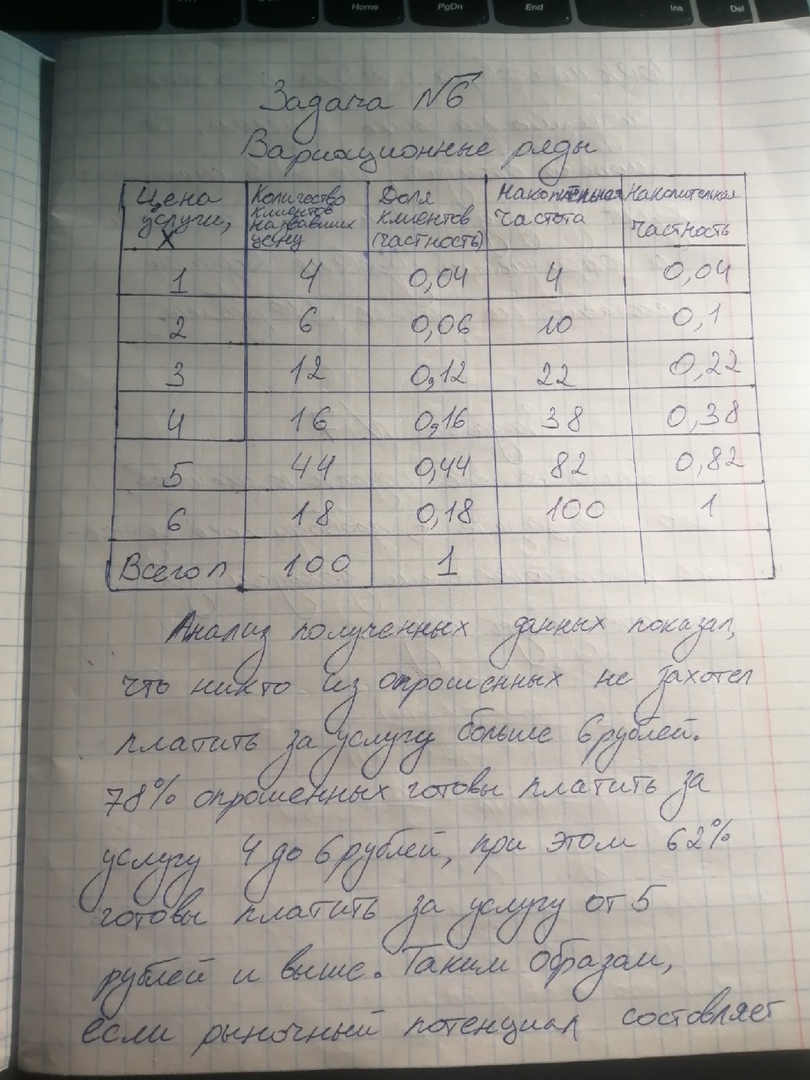 Home PgDn End Ins Del
Задача №6
Вариационные ряды
Цена услуги, х | Количество клиентов назвавших цену | Доля клиентов (частность) | Накопительная частота | Накопительная частность
1 | 4 | 0,04 | 4 | 0,04
2 | 6 | 0,06 | 10 | 0,1
3 | 12 | 0,12 | 22 | 0,22
4 | 16 | 0,16 | 38 | 0,38
5 | 44 | 0,44 | 82 | 0,82
6 | 18 | 0,18 | 100 | 1
Всего n | 100 | 1
Анализ полученных данных показал,
что никто из опрошенных не захотел
платить за услугу больше 6 рублей.
78% опрошенных готовы платить за
услугу 4 до 6 рублей, при этом 62%
готовы платить за услугу от 5
рублей и выше. Таким образом,
если рыночный потенциал составляет